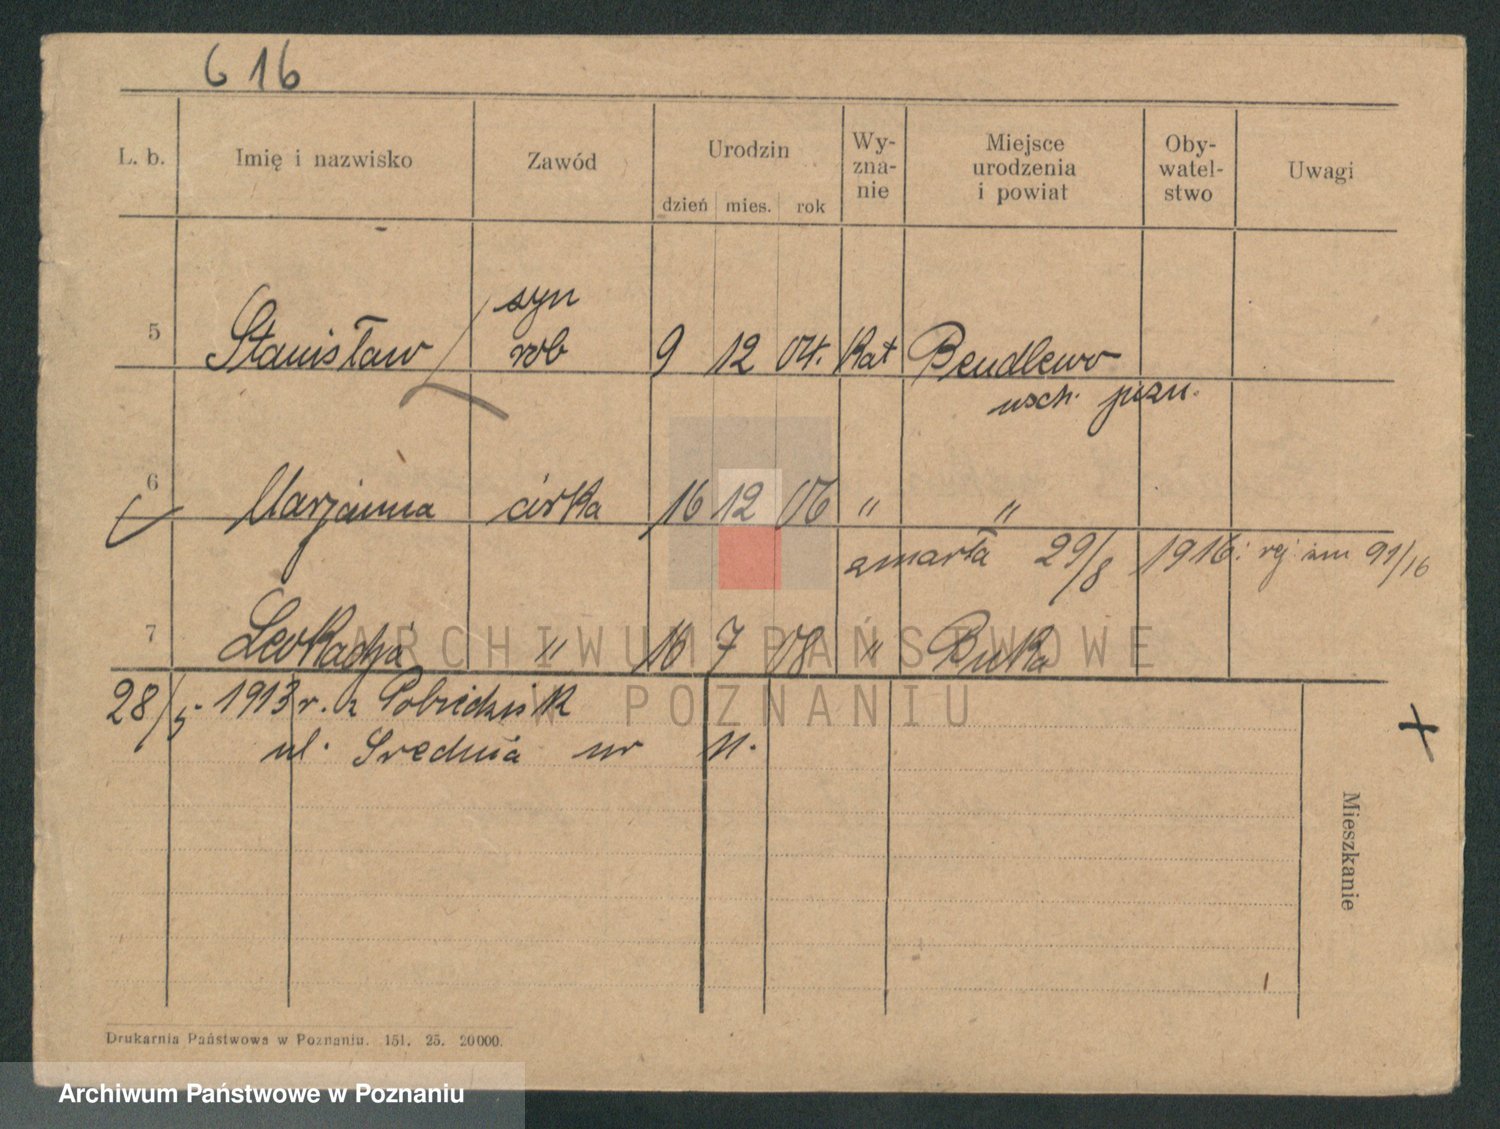 616
L. b. Imię i nazwisko Zawód Urodzin dzień mies. rok Wy-zna-nie Miejsce urodzenia i powiat Oby-watel-stwo Uwagi
syn
5 Stanisław rob 9 12 04. Kat Bendlewo
wsch. pozn.
6 Marjanna córka 16 12 06 " "
zmarła 29/8 1916. rej zm 91/16
7 Leokadja " 16 7 08 " Buka
28/5. 1913 r. z Pobiedzisk
ul. Średnia nr 11.
Mieszkanie
Drukarnia Państwowa w Poznaniu. 151. 25. 20000.
ARCHIWUM PAŃSTWOWE
W POZNANIU
Archiwum Państwowe w Poznaniu